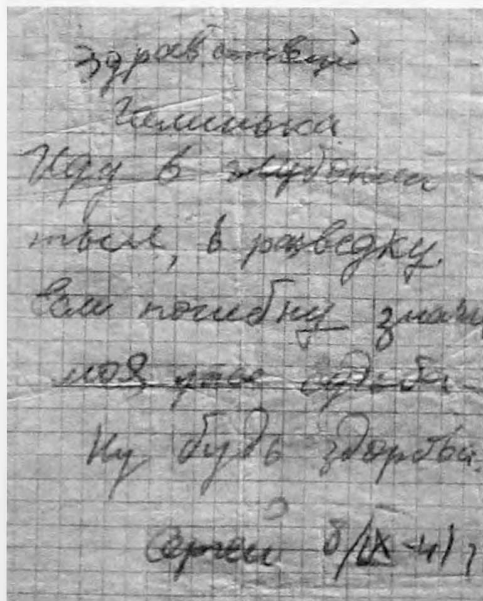 Здравствуй
Галинька
Иду в глубокий
тыл, в разведку.
Если погибну значит
моя уже судьба
Ну будь здорова.
Сергей 8/IX-41 г